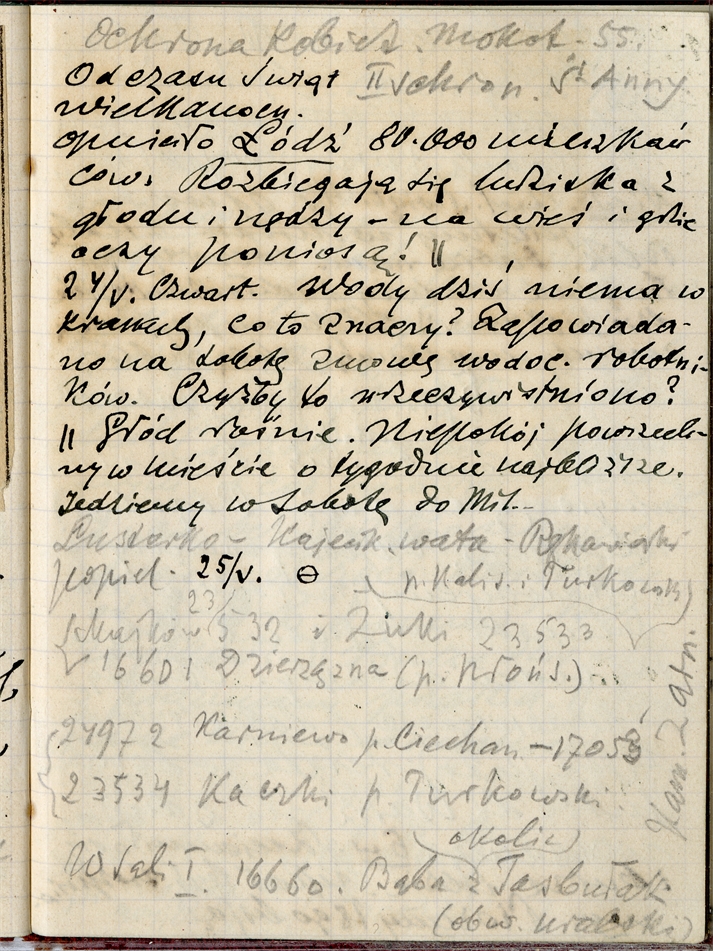 Ochrona Kobiet. Mokot. 55.
Od czasu świąt II schron. Śt Anny
wielkanocn.
opuściło Łódź 80.000 mieszkań
ców. Rozbiegają się ludziska z
głodu i nędzy – na wieś i gdzie
oczy poniosą! ||
24/V. Czwart. Wody dziś niema w
kranach, co to znaczy? Zapowiada-
no na sobotę zmowę wodoc. robotni-
ków. Czyżby to urzeczywistniono?
|| Głód rośnie. Niepokój powszech-
ny w mieście o tygodnie najbliższe.
Jedziemy w sobotę do Mil.
Lusterko – Kajecik. wata – Rękawiczki
popiel. 25/V. ⊖ p. Kalis. i Turkowski)
23/
532 i Zuki 23533
16601 Dzierzązna (p. Płońs.)
Ham. 2 gtn.
24972 Karniewo p. Ciechan. – 17058
23534 Kaczki p. Turkowski
(okolic)
W Sali I. 16660. Baba z
(obw.